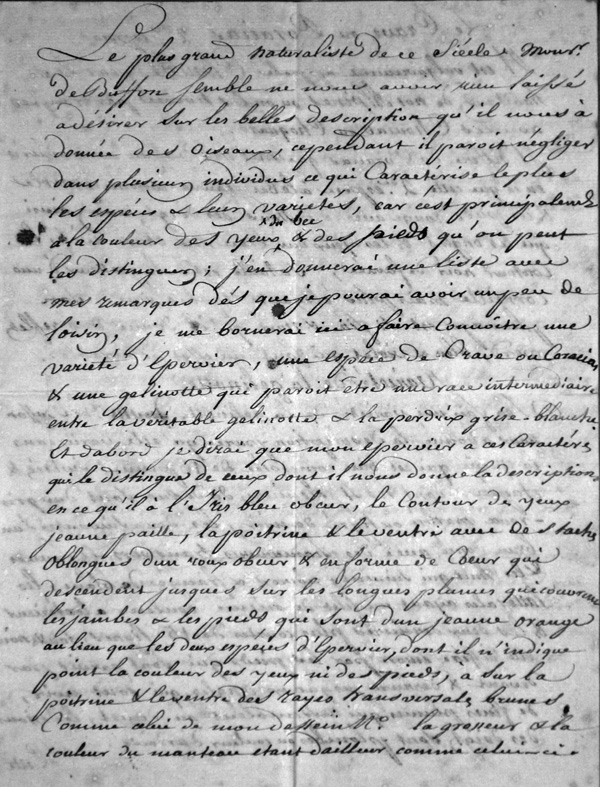 Le plus grand naturaliste de ce Siécle Monsr.
de Buffon semble ne nous avoir rien laissé
a désirer sur les belles description qu'il nous à
donnée des Oiseaux, cependant il paroit négliger
dans plusieurs individus ce qui Caractérise le plus
les espéces & leurs variétés, car c'est principalement
x du bec
à la couleur des yeux, x & des pieds qu'on peut
les distinguer; j'en donnerai une liste avec
mes remarques dés que je pourai avoir un peu de
loisir, je me bornerai ici a faire Connoître une
variété d'Epervier, une espéce de Crave ou Coracias
& une gelinotte qui paroit être une race intermédiaire
entre la véritable gelinotte & la perdrix grise-blanche
Et dabord je dirai que mon epervier a ces Caractéres
qui le distingue de ceux dont il nous donne la descriptions
en ce qu'il à l'Iris bleu obcur, le Contour des yeux
jaune paille, la poitrine & le ventre avec des taches
oblongues d'un roux obcur & en forme de Coeur qui
descendent jusques sur les longues plumes qui couvrent
les jambes & les pieds qui sont d'un jaune orange
au lieu que les deux espéces d'Epervier, dont il n'indique
point la couleur des yeux ni des pieds, à sur la
poitrine & le ventre des rayes transversales brunes
Comme celui de mon dessein No. la grosseur & la
couleur du manteau etant dailleur comme celui-ci.